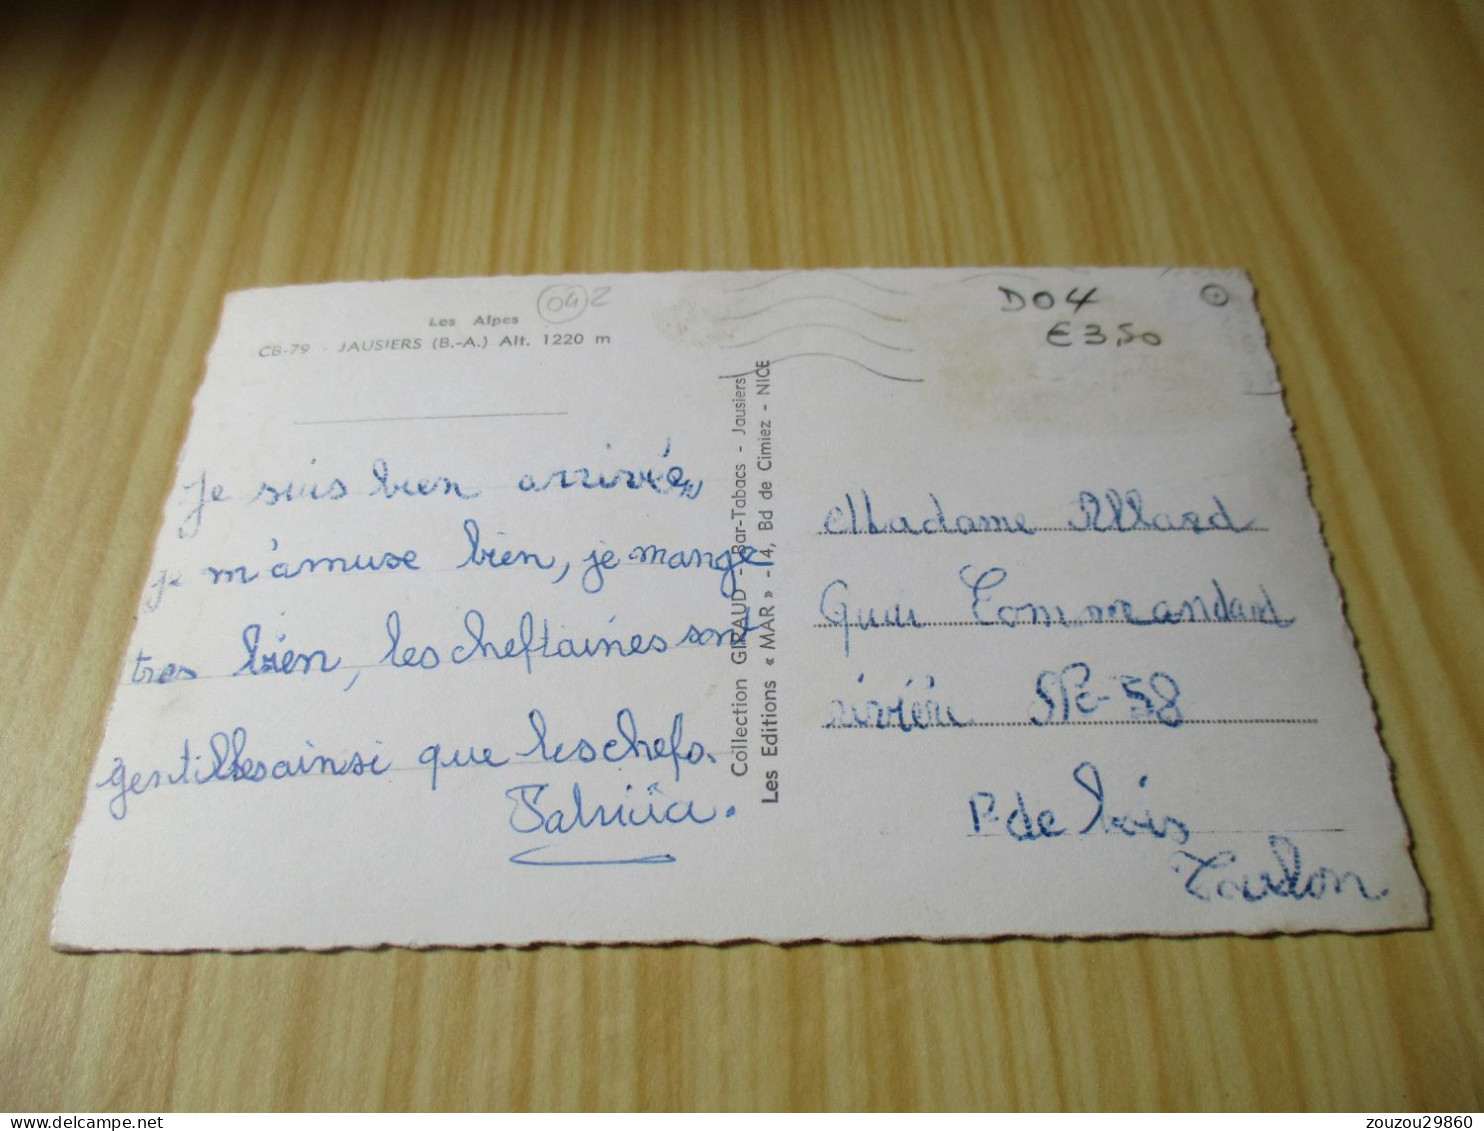 Les Alpes
042
CB-79 - JAUSIERS (B.-A.) Alt. 1220 m
Je suis bien arrivée,
je m'amuse bien, je mange
tres bien, les cheftaines sont
gentilles ainsi que les chefs.
Patricia.
Collection GIRAUD - Bar-Tabacs - Jausiers
Les Editions « MAR » - 14, Bd de Cimiez - NICE
D04
€ 3,50
Madame Allard
Commandant
rivière 58
P. de bois
Toulon.
zouzou29860